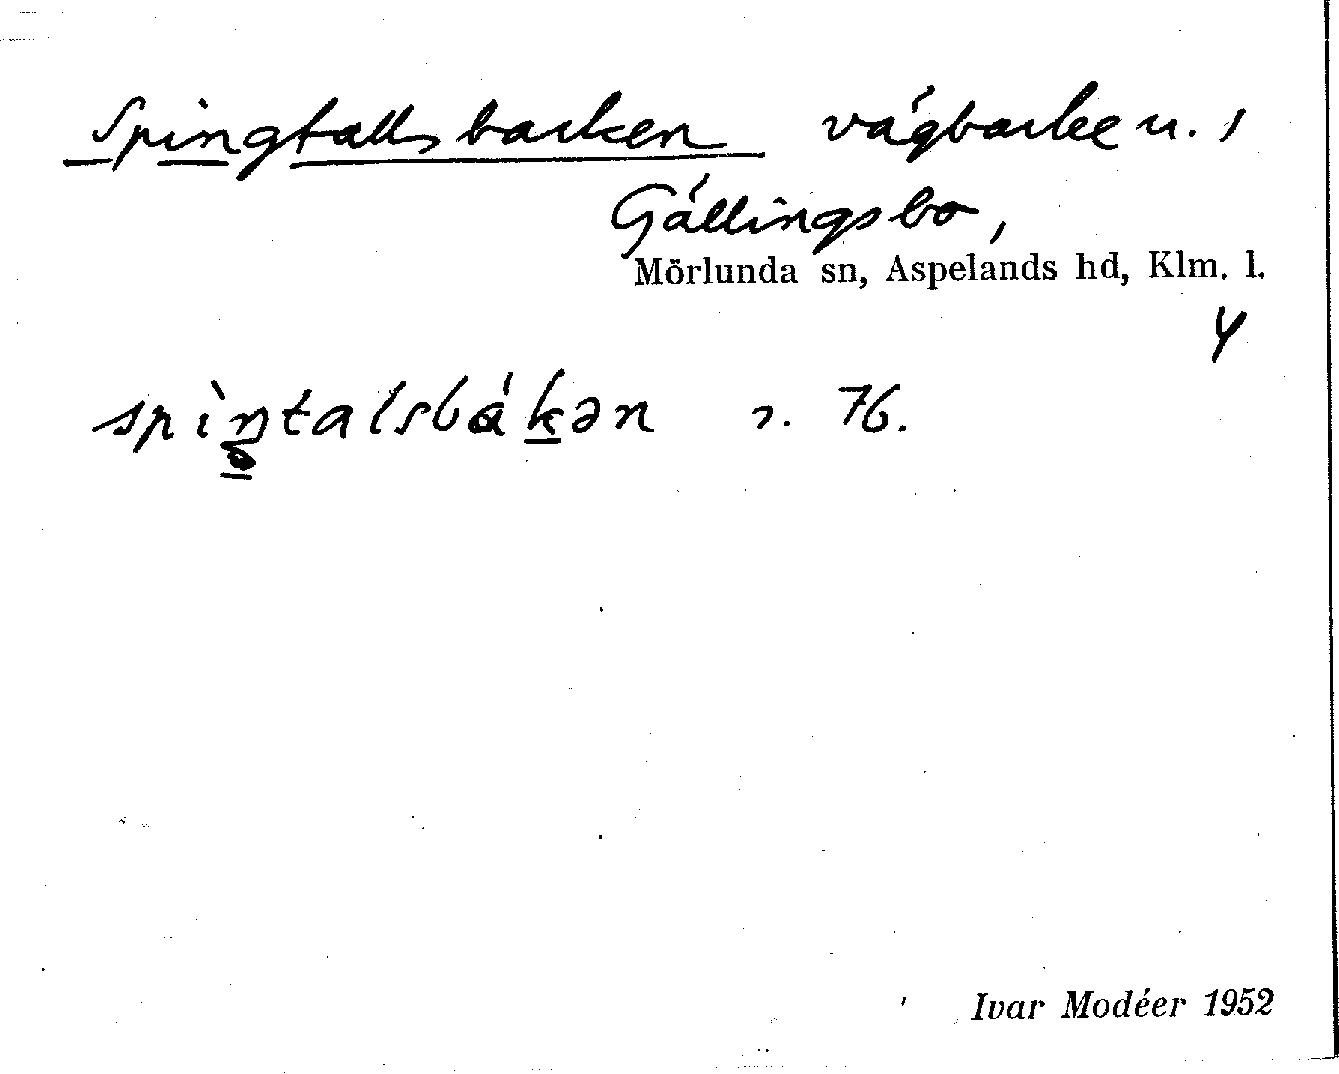 Spingtallsbacken vägbacke n. 1
Gällingsbo,
Mörlunda sn, Aspelands hd, Klm. l.
4
spìŋtalsbákən r. 76.
Ivar Modéer 1952